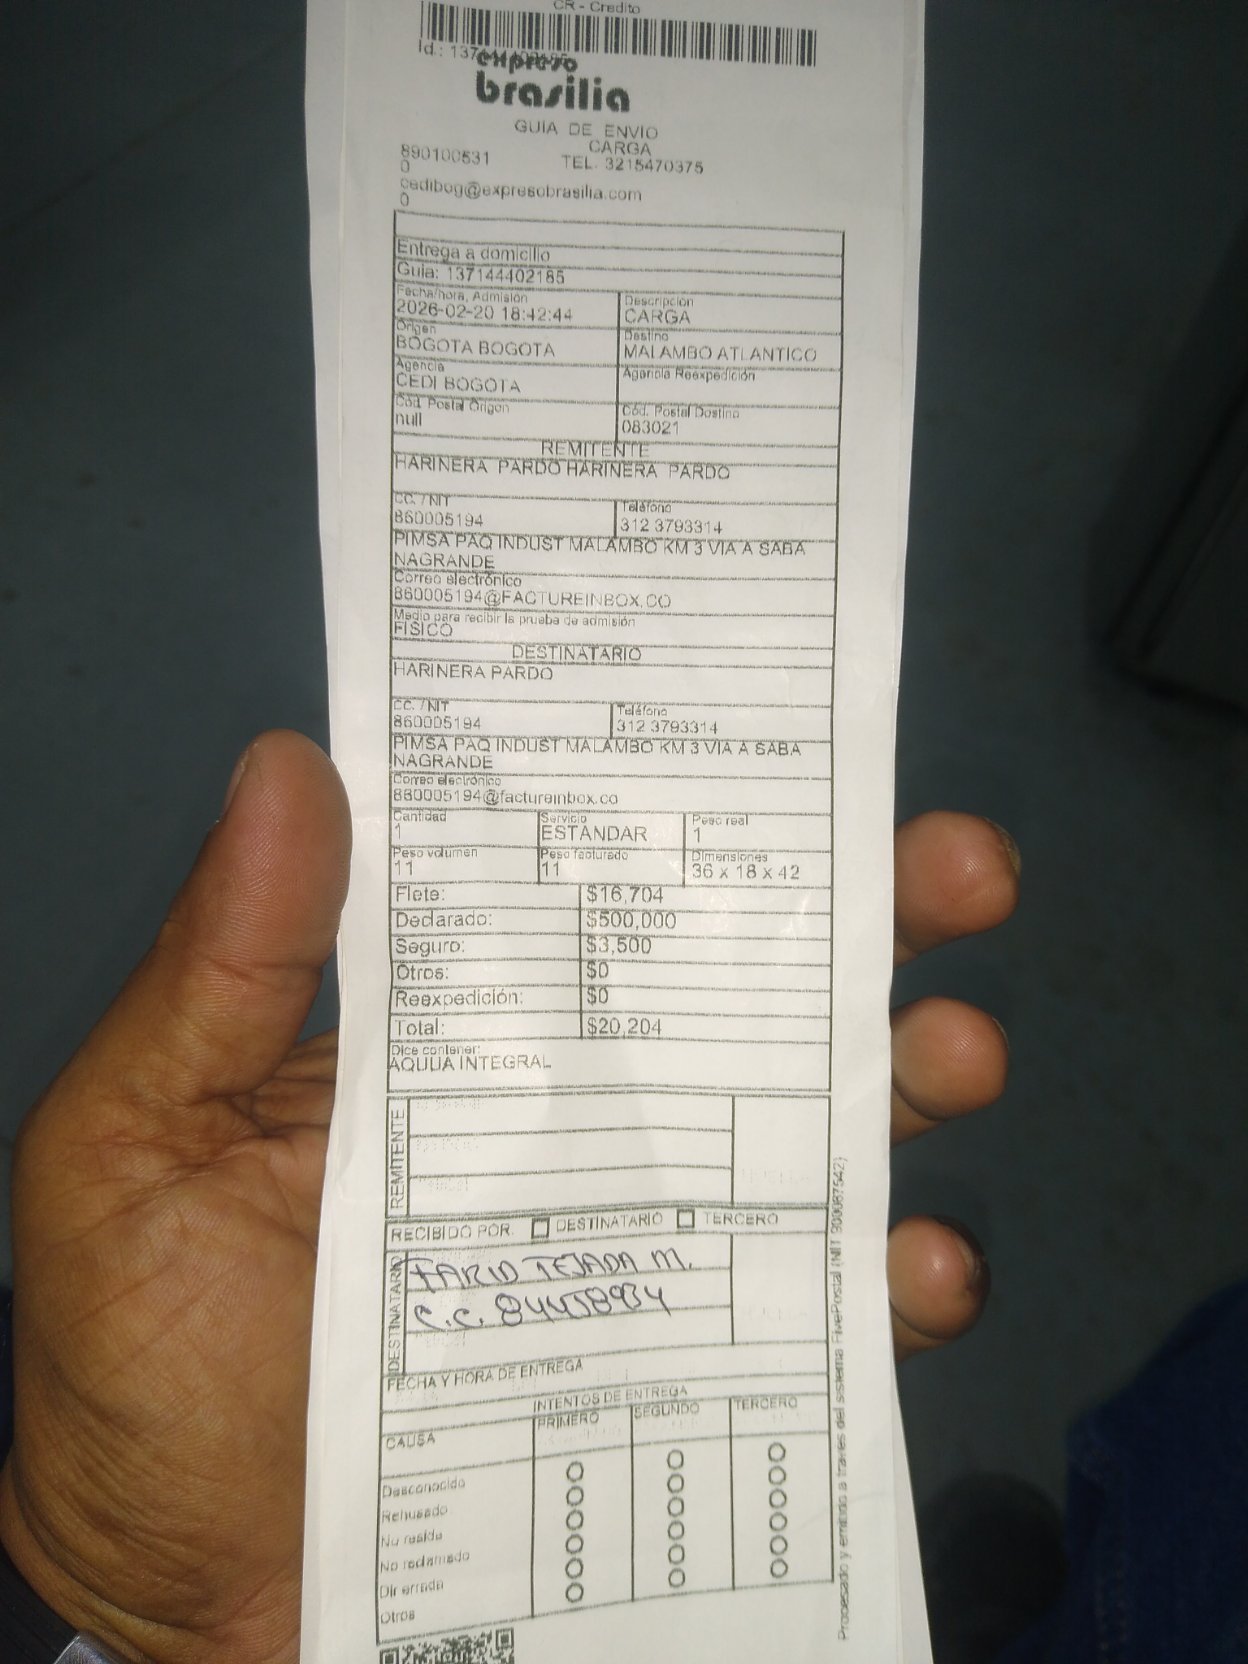 CR - Credito
Id.: 137144402185
expreso
brasilia
GUIA DE ENVIO
CARGA
890100531
0
TEL. 3215470375
cedibog@expresobrasilia.com
0
Entrega a domicilio
Guia: 137144402185
Fecha/hora, Admisión
2026-02-20 18:42:44
Descripcion
CARGA
Origen
BOGOTA BOGOTA
Destino
MALAMBO ATLANTICO
Agencia
CEDI BOGOTA
Agencia Reexpedición
Cód. Postal Origen
null
Cód. Postal Destino
083021
REMITENTE
HARINERA PARDO HARINERA PARDO
CC. / NIT
860005194
Teléfono
312 3793314
PIMSA PAQ INDUST MALAMBO KM 3 VIA A SABA
NAGRANDE
Correo electrónico
860005194@FACTUREINBOX.CO
Medio para recibir la prueba de admisión
FISICO
DESTINATARIO
HARINERA PARDO
CC. / NIT
860005194
Teléfono
312 3793314
PIMSA PAQ INDUST MALAMBO KM 3 VIA A SABA
NAGRANDE
Correo electrónico
860005194@factureinbox.co
Cantidad
1
Servicio
ESTANDAR
Peso real
1
Peso volumen
11
Peso facturado
11
Dimensiones
36 x 18 x 42
Flete: $16,704
Declarado: $500,000
Seguro: $3,500
Otros: $0
Reexpedición: $0
Total: $20,204
Dice contener:
AQULIA INTEGRAL
REMITENTE
RECIBIDO POR. DESTINATARIO TERCERO
DESTINATARIO
FARID TEJADA M.
C.C. 84458934
FECHA Y HORA DE ENTREGA
INTENTOS DE ENTREGA
CAUSA PRIMERO SEGUNDO TERCERO
Desconocido
Rehusado
No reside
No reclamado
Dir errada
Otros
Procesado y emitido a traves del sistema FivePostal (NIT 900087542)